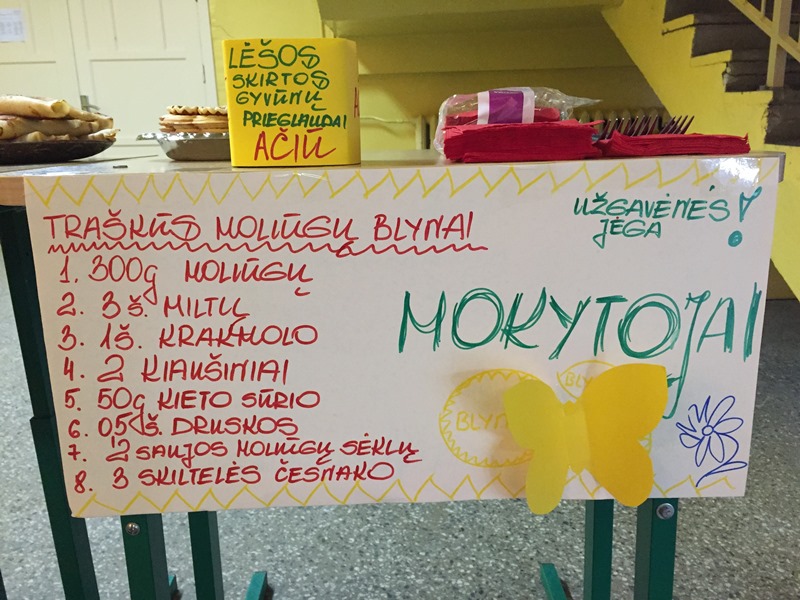 LĖŠOS
SKIRTOS
GYVŪNŲ
PRIEGLAUDAI
AČIŪ
TRAŠKŪS MOLIŪGŲ BLYNAI
UŽGAVĖNĖS!
JĖGA
1. 300g MOLIŪGŲ
2. 3 š. MILTŲ
3. 1š. KRAKMOLO
4. 2 KIAUŠINIAI
5. 50g KIETO SŪRIO
6. 0,5 š. DRUSKOS
7. 2 SAUJOS MOLIŪGŲ SĖKLŲ
8. 3 SKILTELĖS ČESNAKO
MOKYTOJAI